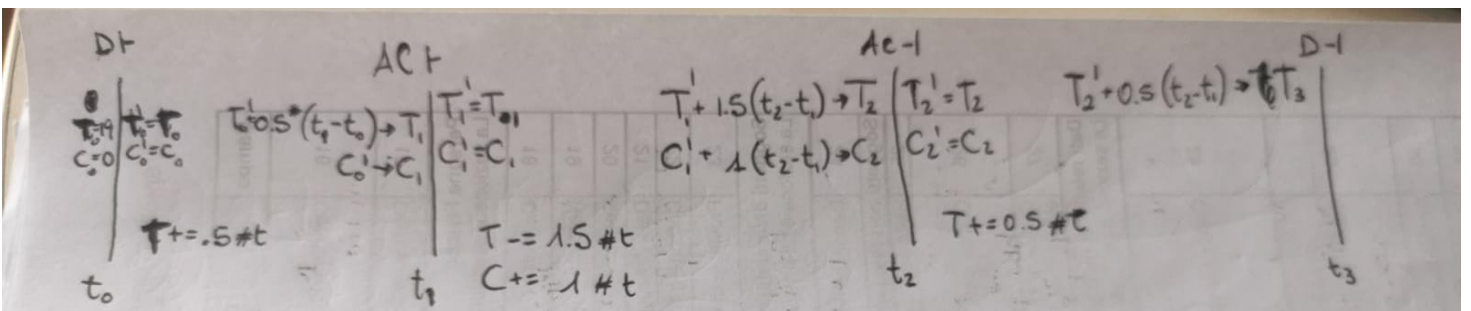 D⊢ AC⊢ AC⊣ D⊣
T₀=19 T₀'=T₀ T₀'0.5*(t₁-t₀)→T₁ T₁'=T₁ T₁'+1.5(t₂-t₁)→T₂ T₂'=T₂ T₂'+0.5(t₂-t₁)→T₃
C₀=0 C₀'=C₀ C₀'→C₁ C₁'=C₁ C₁'+1(t₂-t₁)→C₂ C₂'=C₂
T+=.5#t T-=1.5#t T+=0.5#t
C+=1#t
t₀ t₁ t₂ t₃